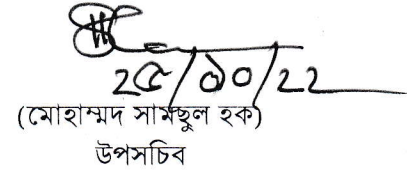 ২৫/১০/২২
(মোহাম্মদ সামছুল হক)
উপসচিব